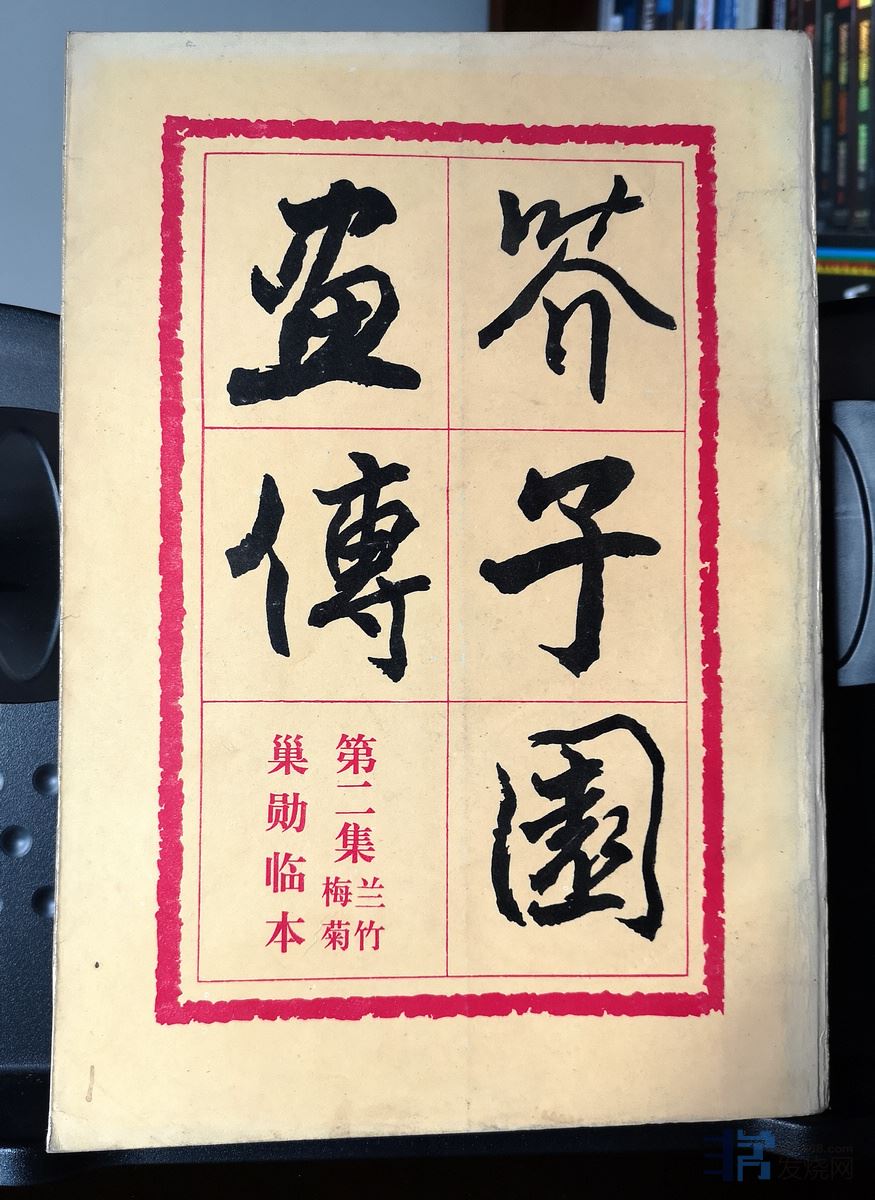 芥子園
畫傳
第二集
兰竹
梅菊
巢勋临本
发烧网